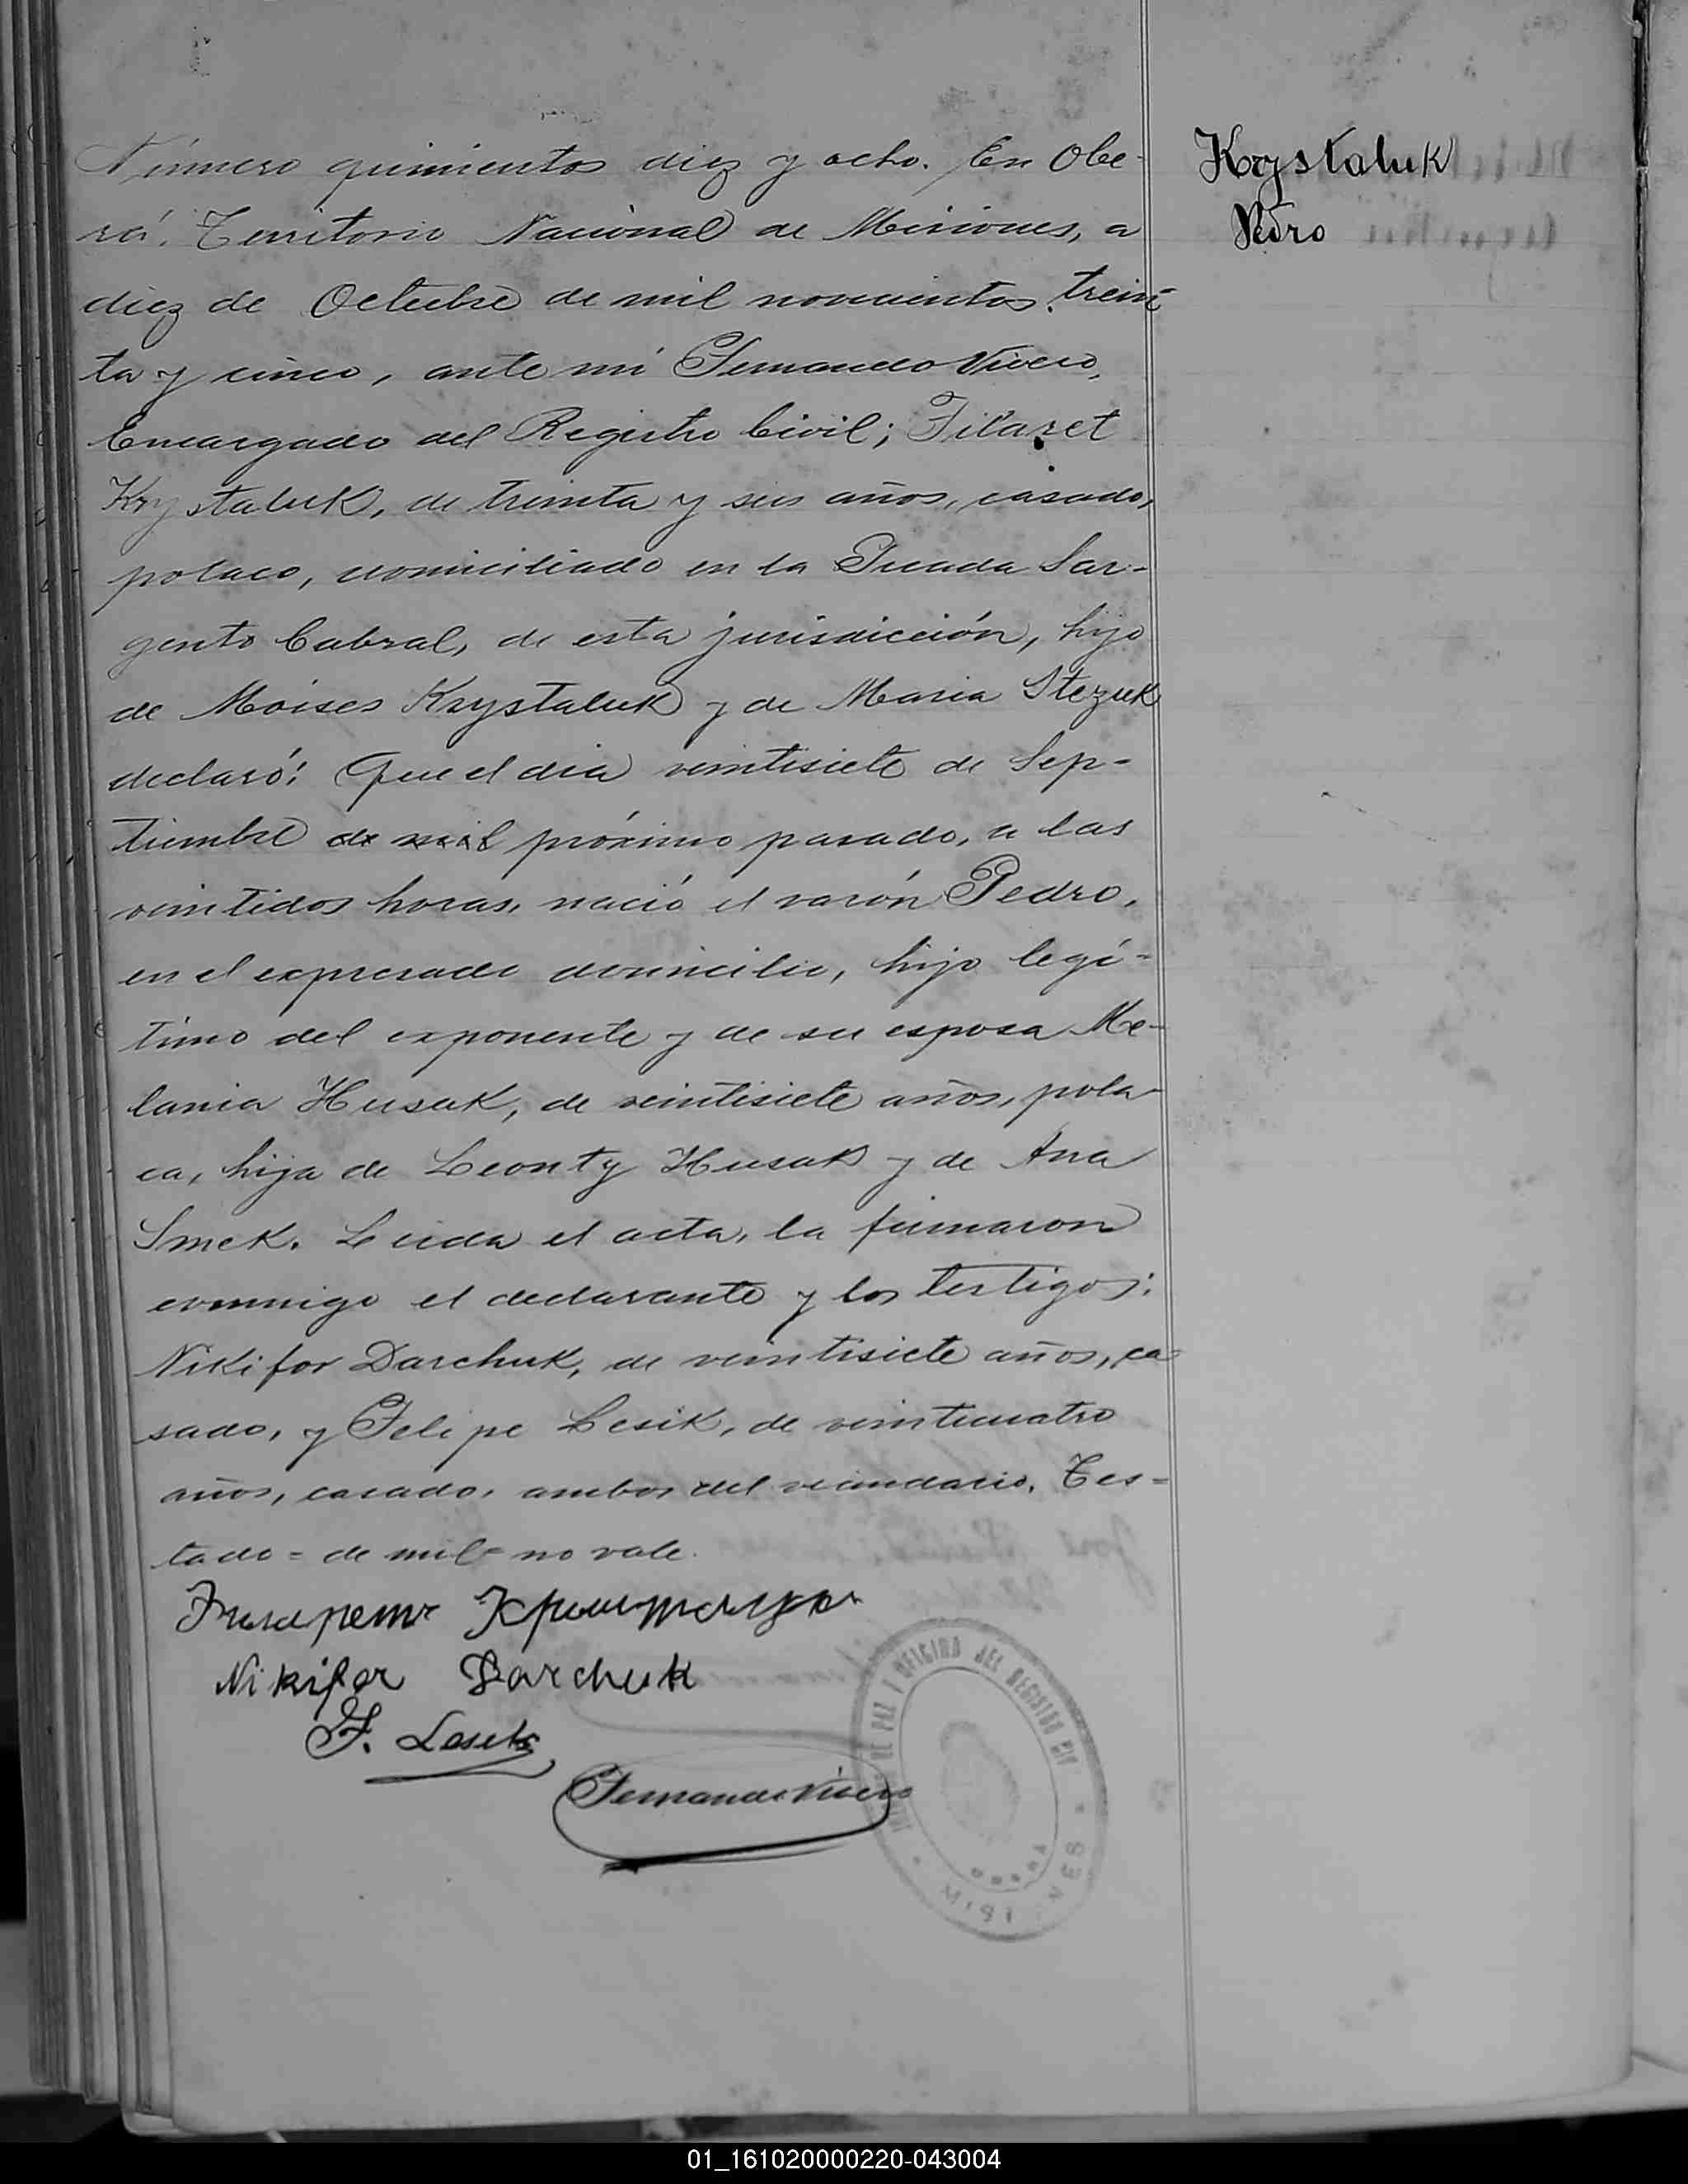 Krystaluk
Pedro
Número quinientos diez y ocho. En Obe-
rá. Territorio Nacional de Misiones, a
diez de Octubre de mil novecientos trein-
ta y cinco, ante mí Fernando Vivero,
Encargado del Registro Civil; Filaret
Krystaluk, de treinta y seis años, casado,
polaco, domiciliado en la Picada Sar-
gento Cabral, de esta jurisdicción, hijo
de Moises Krystaluk y de Maria Stezuk
declaró: Que el dia veintisiete de Sep-
tiembre de mil próximo pasado, a las
veintidos horas, nació el varón Pedro,
en el expresado domicilio, hijo legí-
timo del exponente y de su esposa Me-
lania Husak, de veintisiete años, pola-
ca, hija de Leonty Husak y de Ana
Smek. Leida el acta, la firmaron
conmigo el declarante y los testigos:
Nikifor Darchuk, de veintisiete años, ca-
sado, y Felipe Lesik, de veinticuatro
años, casado, ambos del vecindario. Tes-
tado = de mil = no vale.
Nikifor Darchuk
F. Lesik
Fernando Vivero
PAZ Y OFICINA DEL REGISTRO CIV
OBERA
MISIONES
01_161020000220-043004